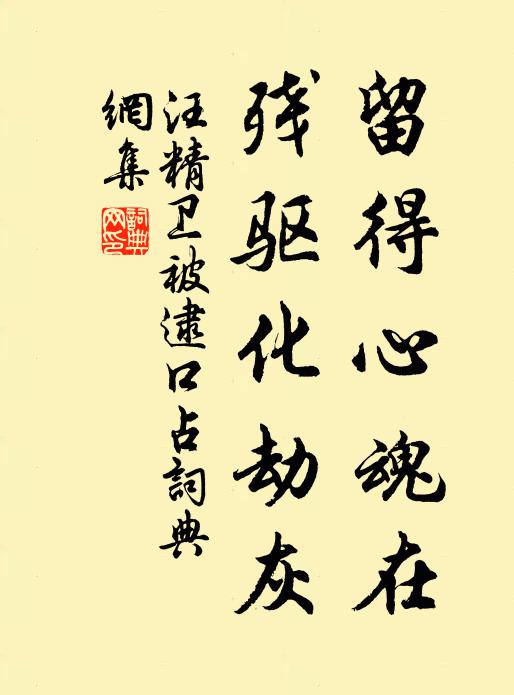 留得心魂在
残驱化劫灰
汪精卫被逮口占詞典
網集
詞典
网印